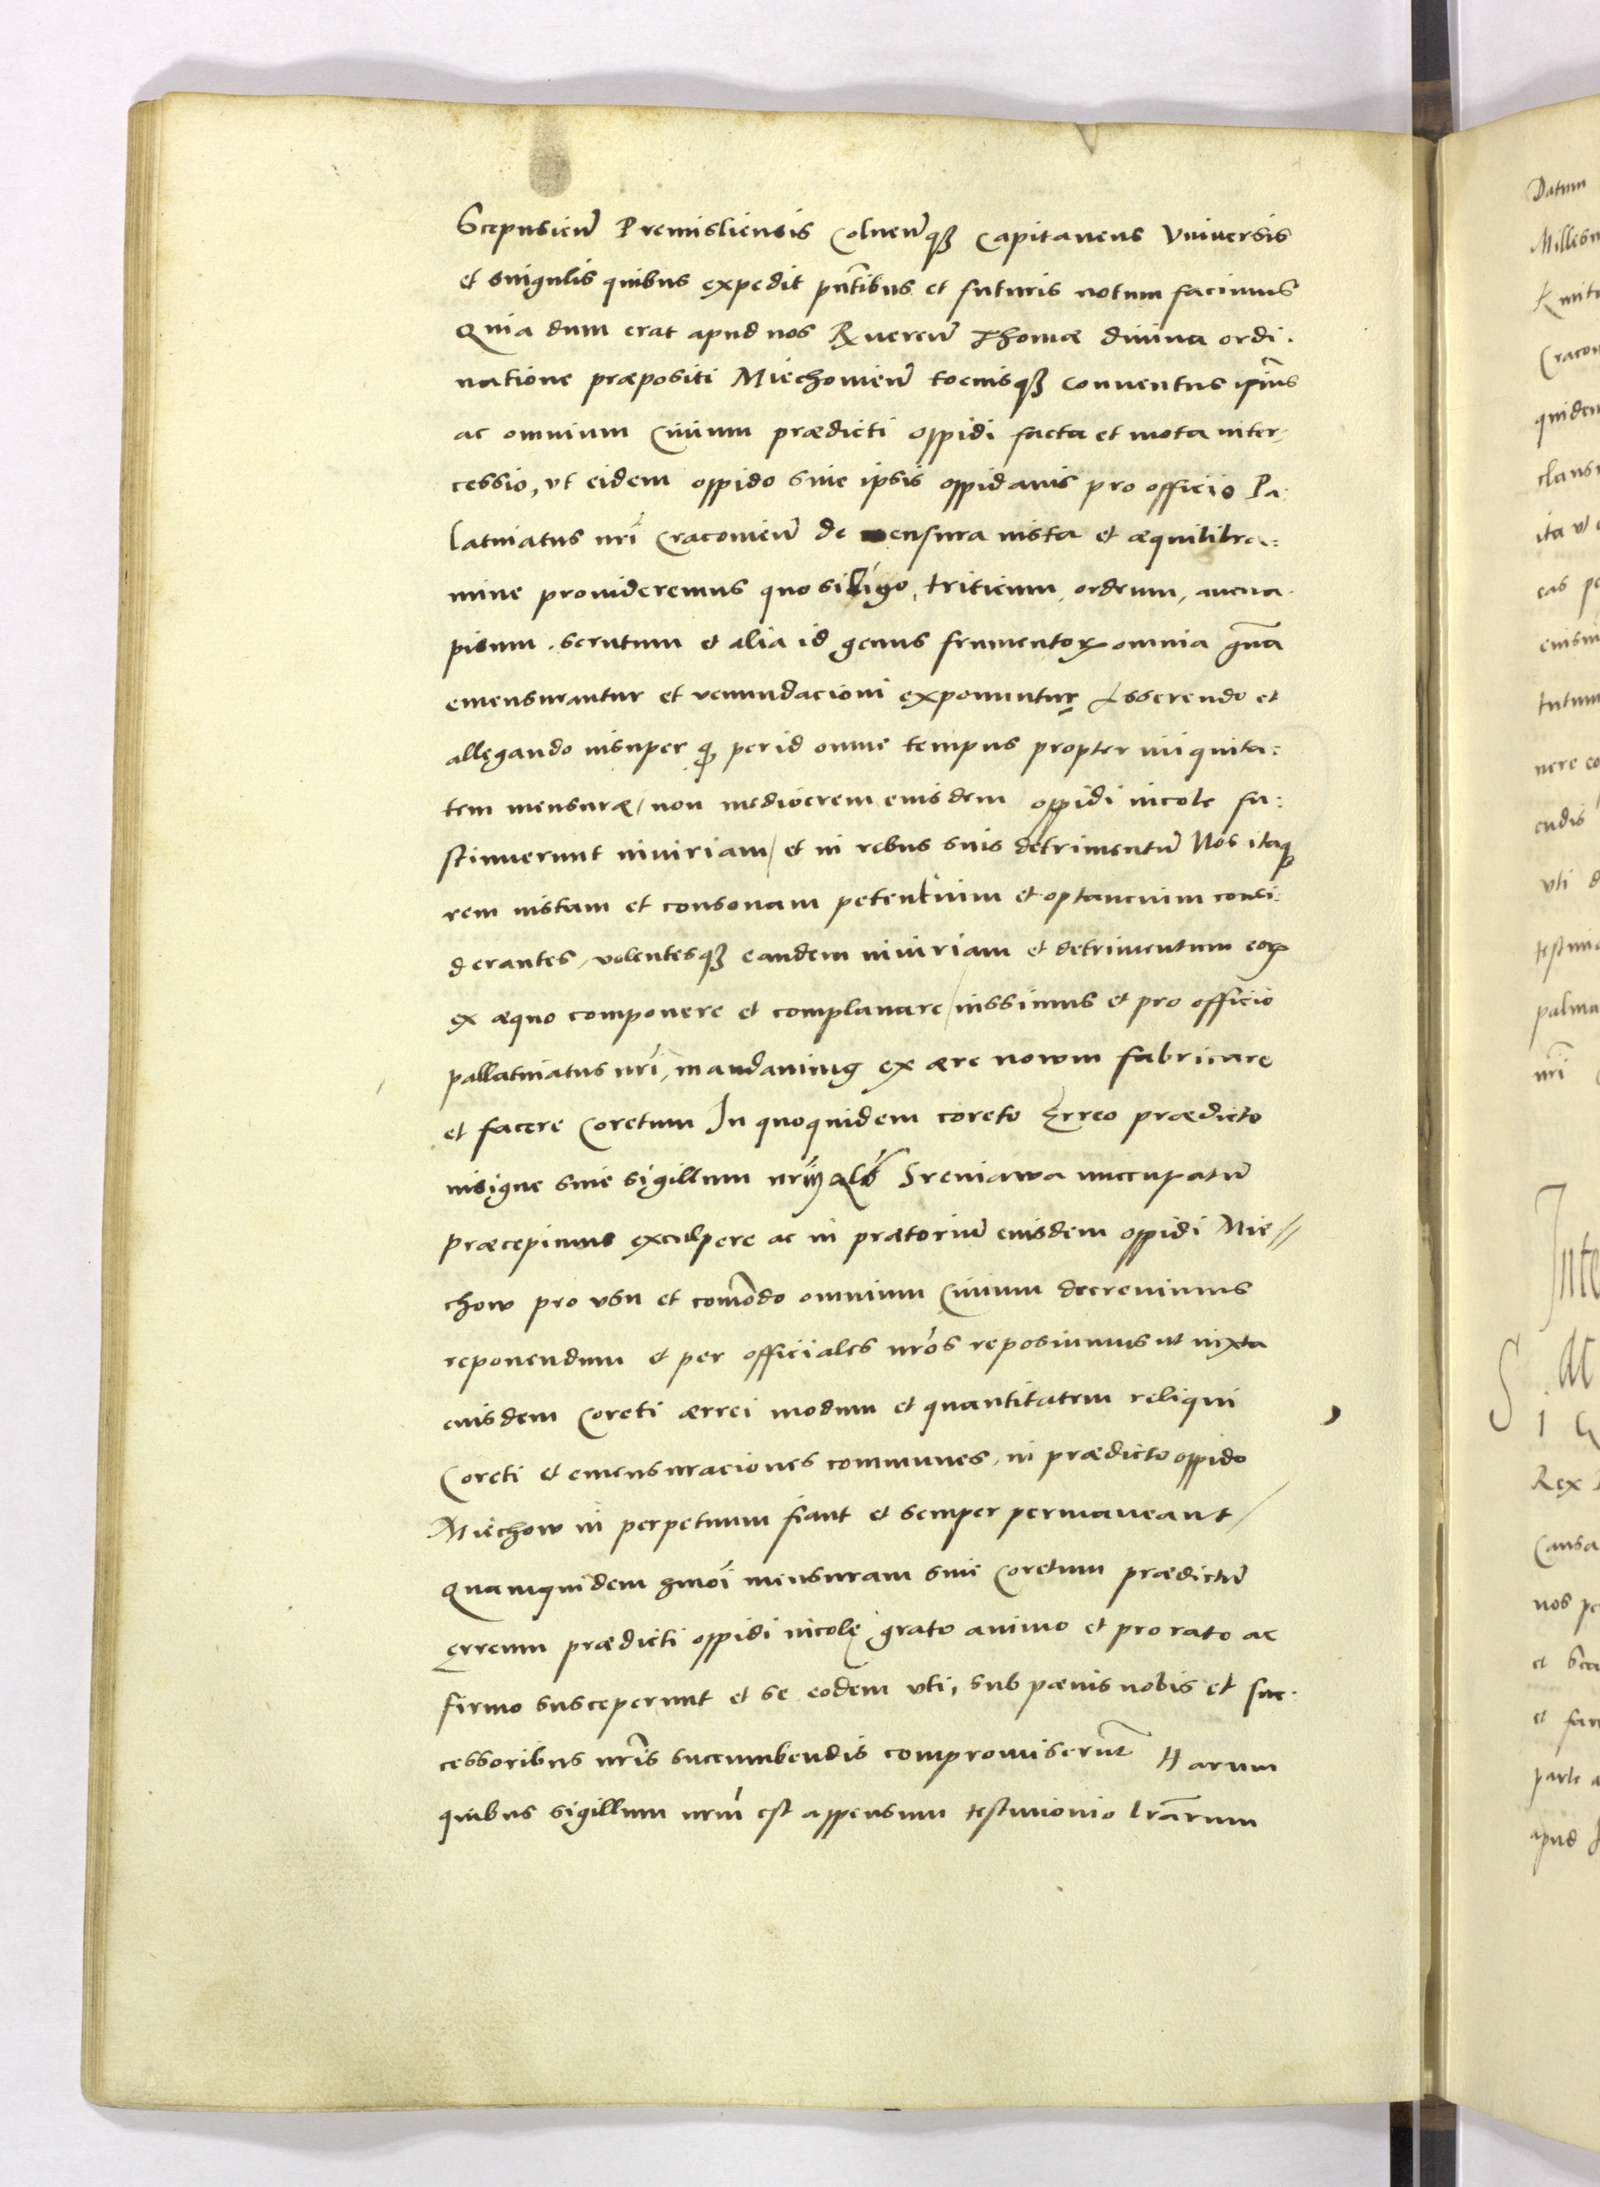 Scepusień Premisliensis Colneńqꝫ Capitaneus Vniuersis
et singulis quibus expedit pñtibus et futuris notum facimus
Quia dum erat apud nos Rx̱ueren̄ Thomæ diuina ordi.
natione præpositi Miechouień tociusqꝫ conuentus ipīus
ac omnium Ciuium prædicti oppidi facta et mota inter,
cessio, vt eidem oppido siue ipsis oppidanis pro officio Pa:
latinatus nrī Cracouień de mensura iusta et æquilibra:
mine prouideremus quo siligo, triticum, ordeum, auena.
pisum. serutum et alia id genus frumentoꝝ omnia gña
emensurantur et venundacioni exponuntur Asserendo et
allegando insuper ꝙ per id omne tempus propter iniquita:
tem mensuræ / non mediocrem eiusdem oppidi incole su:
stinuerunt iniuriam / et in rebus suis detrimentū Nos itaqꝫ
rem iustam et consonam petentium et optancium consi:
derantes, volentesqꝫ eandem iniuriam et detrimentum eoꝝ
ex æquo componere et complanare / iussimus et pro officio
pallatinatus nrī, mandauimꝰ ex ære nowm fabricare
et facere Coretum In quoquidem coreto Ęrreo prædicto
insigne siue sigillum nrm̄ als Sreniawa nuccupatū
præcepimus exculpere ac in prætoriū eiusdem oppidi Mie//
chow pro vsu et comōdo omnium Ciuium decreuimus
reponendum et per officiales nrōs reposiuimus ut iuxta
eiusdem Coreti ærrei modum et quantitatem reliqui
Coreti et emensuraciones communes, in prædicto oppido
Miechow in perpetuum fiant et semper permaneant /
Quamquidem hmōi mensuram siue Coretum prædictū
Ęrreum prædicti oppidi incolę grato animo et pro rato ac
firmo susceperunt et se eodem vti, sub pænis nobis et suc.
cessoribus nrīs succumbendis compromiserūt Harum
quibus sigillum nrm̄ est appensum testimonio lrārum
Datum
Cracou
quidem
ita vt
tutum
nere
endis
vti
palma
nrī
Inte
ac
S
Rex
Causa
nos
et
et
parte
apud